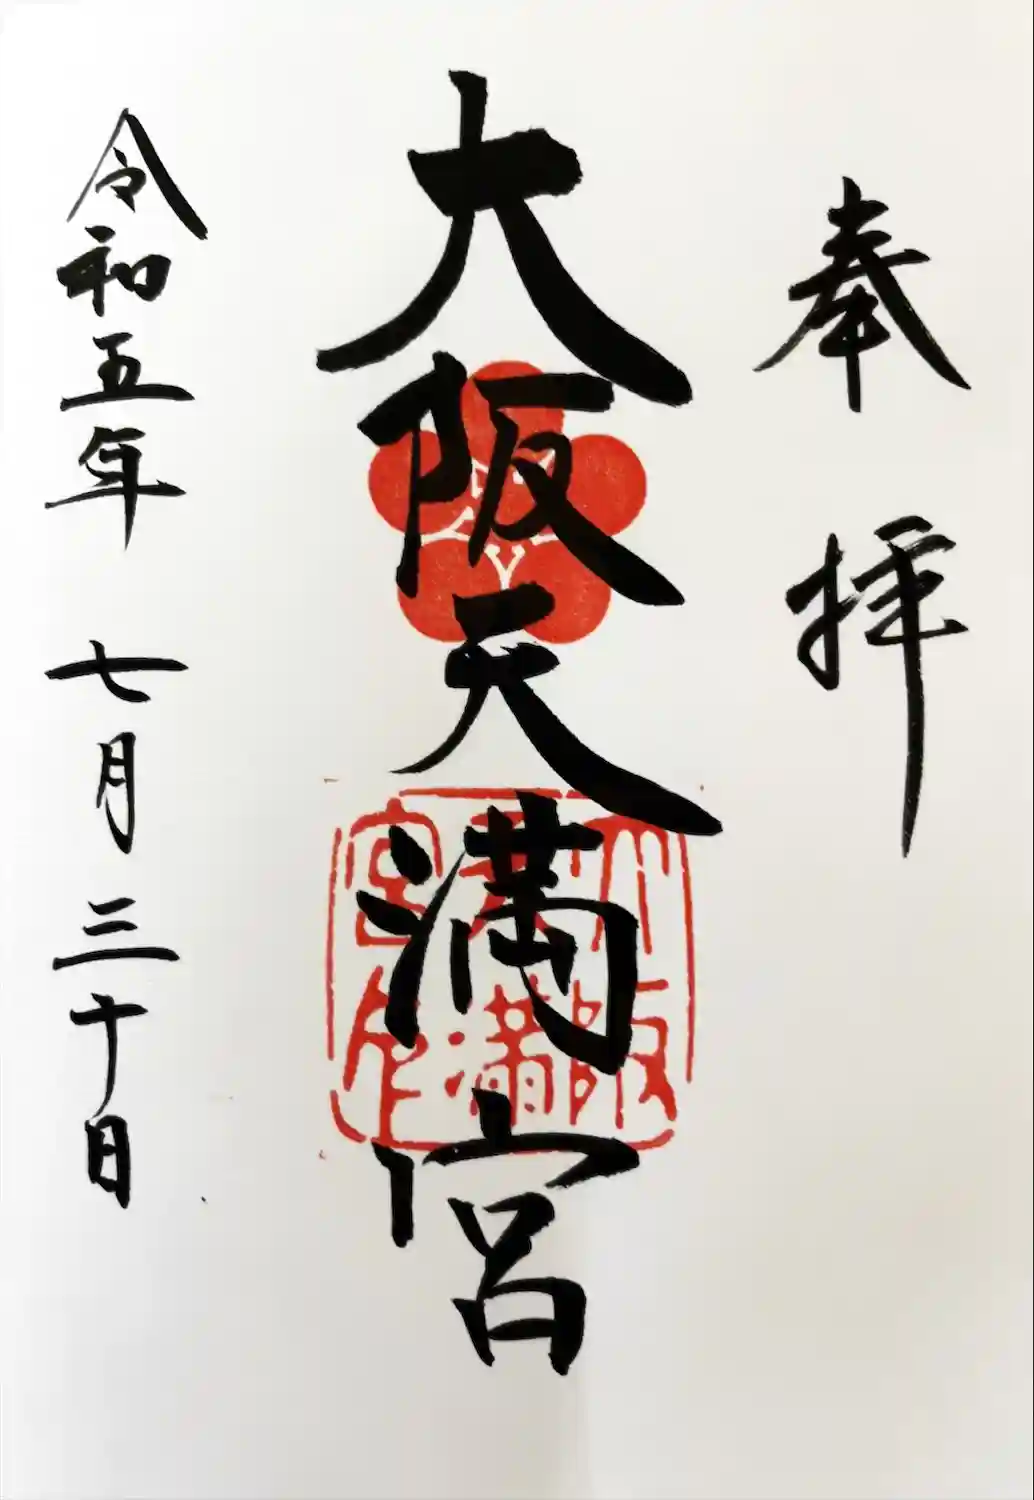 奉拝
大阪天満宮
令和五年 七月三十日
大阪
天満
宮印